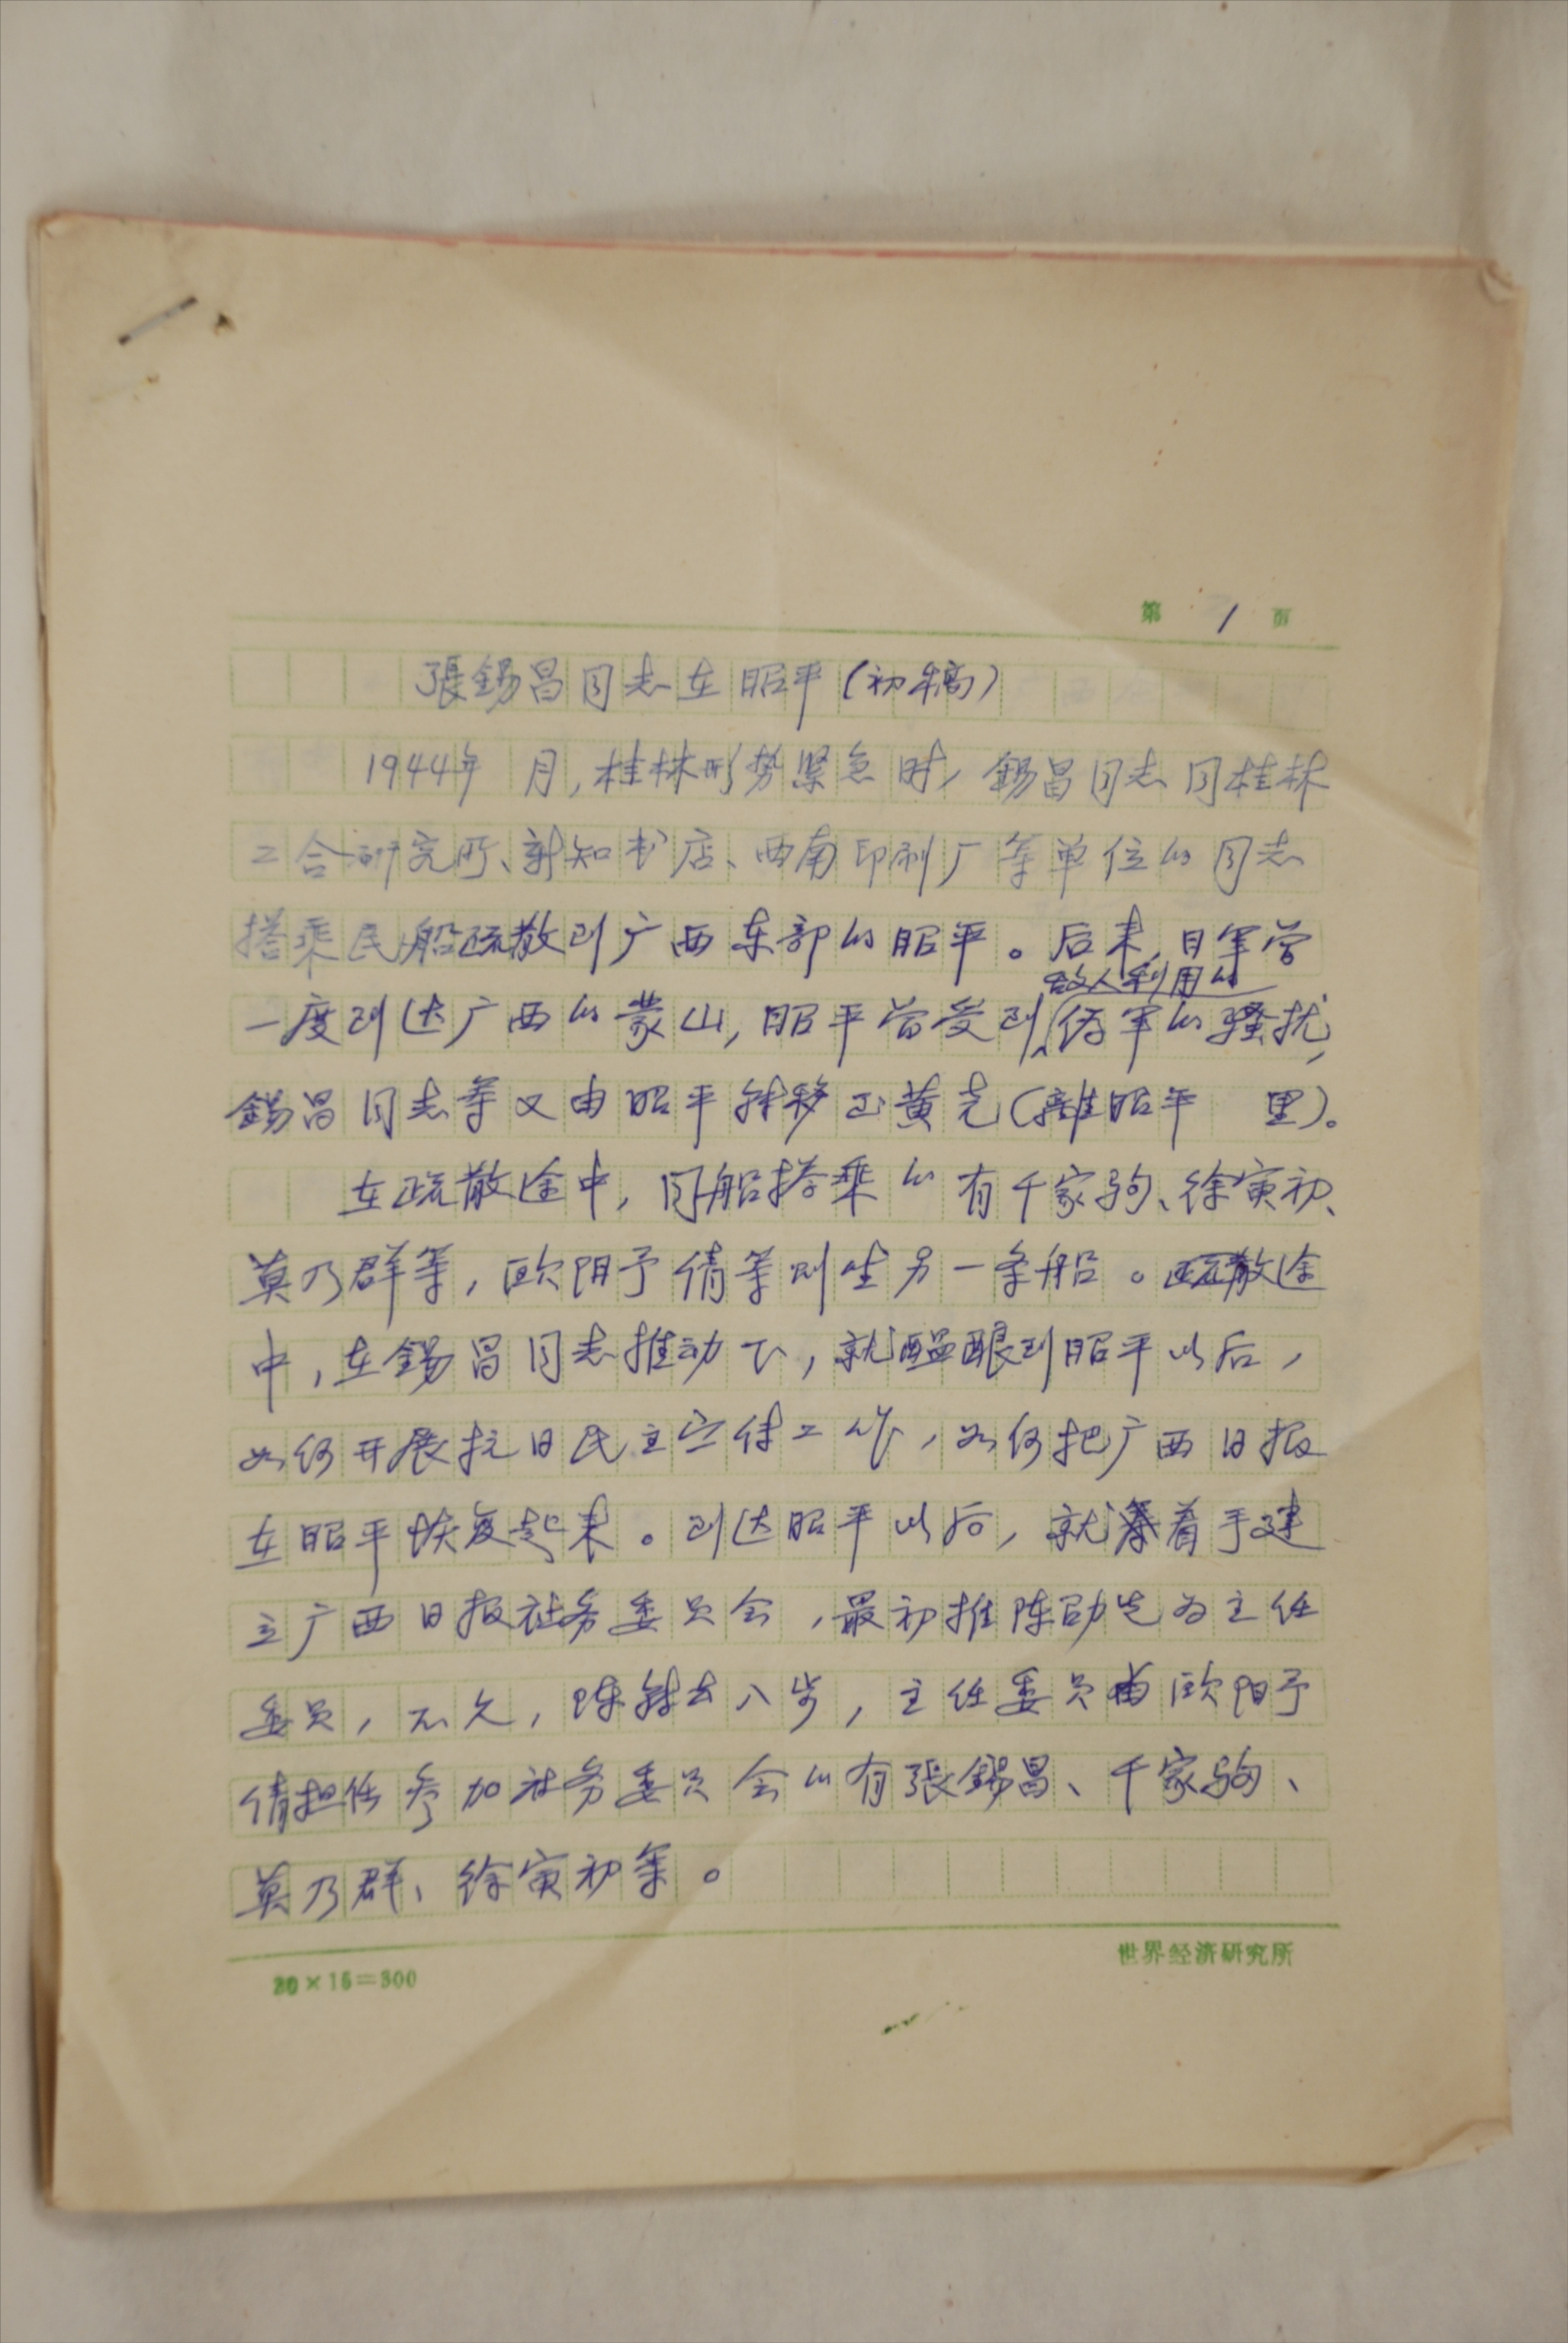 第 1 页
張錫昌同志在昭平(初稿)
1944年 月,桂林形势紧急时,錫昌同志同桂林
工合研究所、新知书店、西南印刷厂等单位的同志
搭乘民船疏散到广西东部的昭平。后来,日军曾
敌人利用的
一度到达广西的蒙山,昭平曾受到伪军的骚扰,
錫昌同志等又由昭平转移至黄尧(離昭平 里)。
在疏散途中,同船搭乘的有千家驹、徐寅初、
莫乃群等,欧阳予倩等则坐另一条船。疏散途
中,在錫昌同志推动下,就醖酿到昭平以后,
如何开展抗日民主宣传工作,如何把广西日报
在昭平恢复起来。到达昭平以后,就着手建
立广西日报社务委员会,最初推陈劭先为主任
委员,不久,陈转去八步,主任委员由欧阳予
倩担任参加社务委员会的有張錫昌、千家驹、
莫乃群、徐寅初等。
20×15=300
世界经济研究所